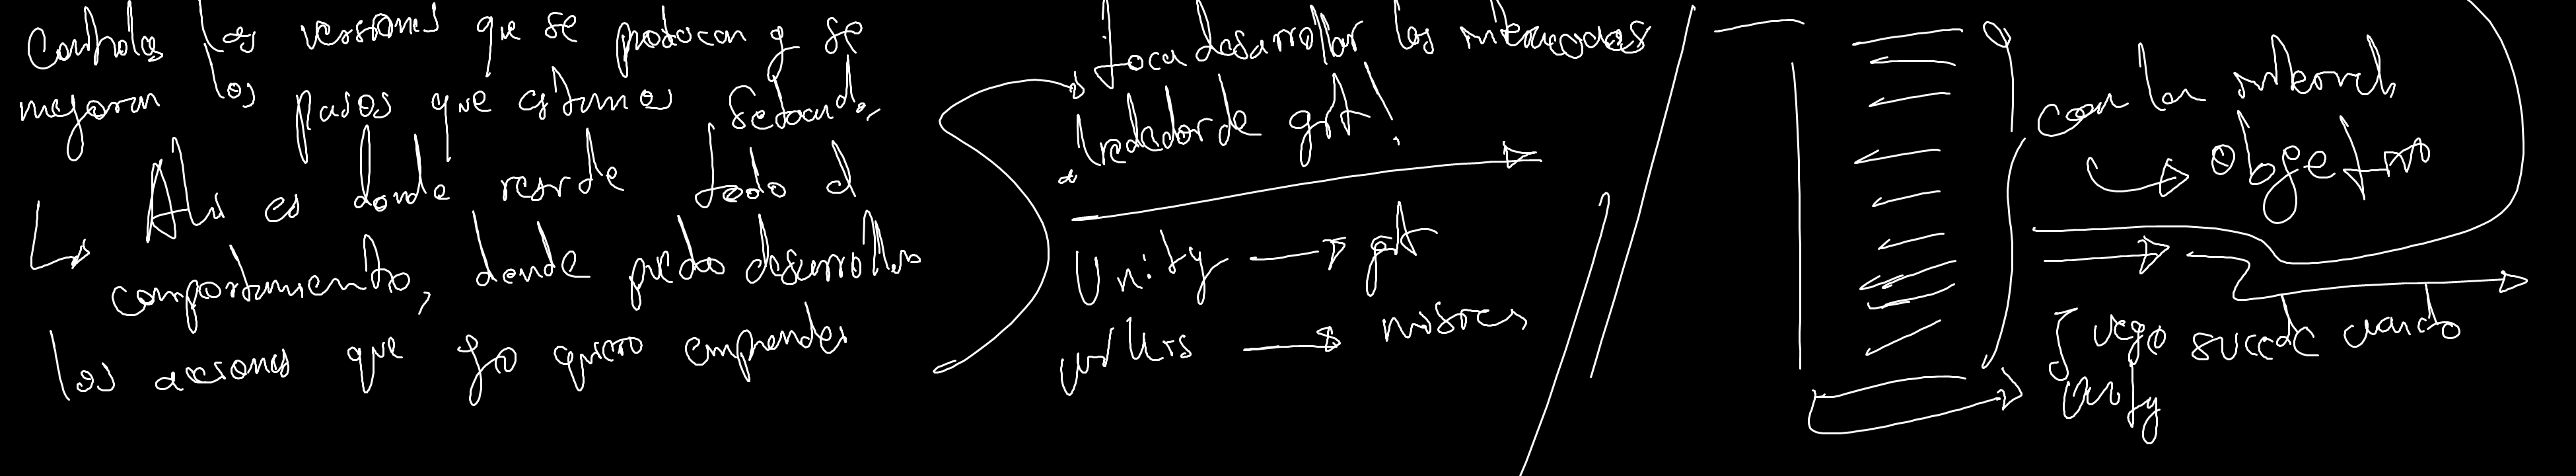 Controlas los versiones que se produzcan y se
mejoran los pasos que estamos
Ahi es donde reside todo el
comportamiento, donde puedo desarrollar
los acciones que yo quiero emprender
toca desarrollar los
alrededor de git!
Unity → git
→
con la
↳ Objetivo
Juego sucede cuando